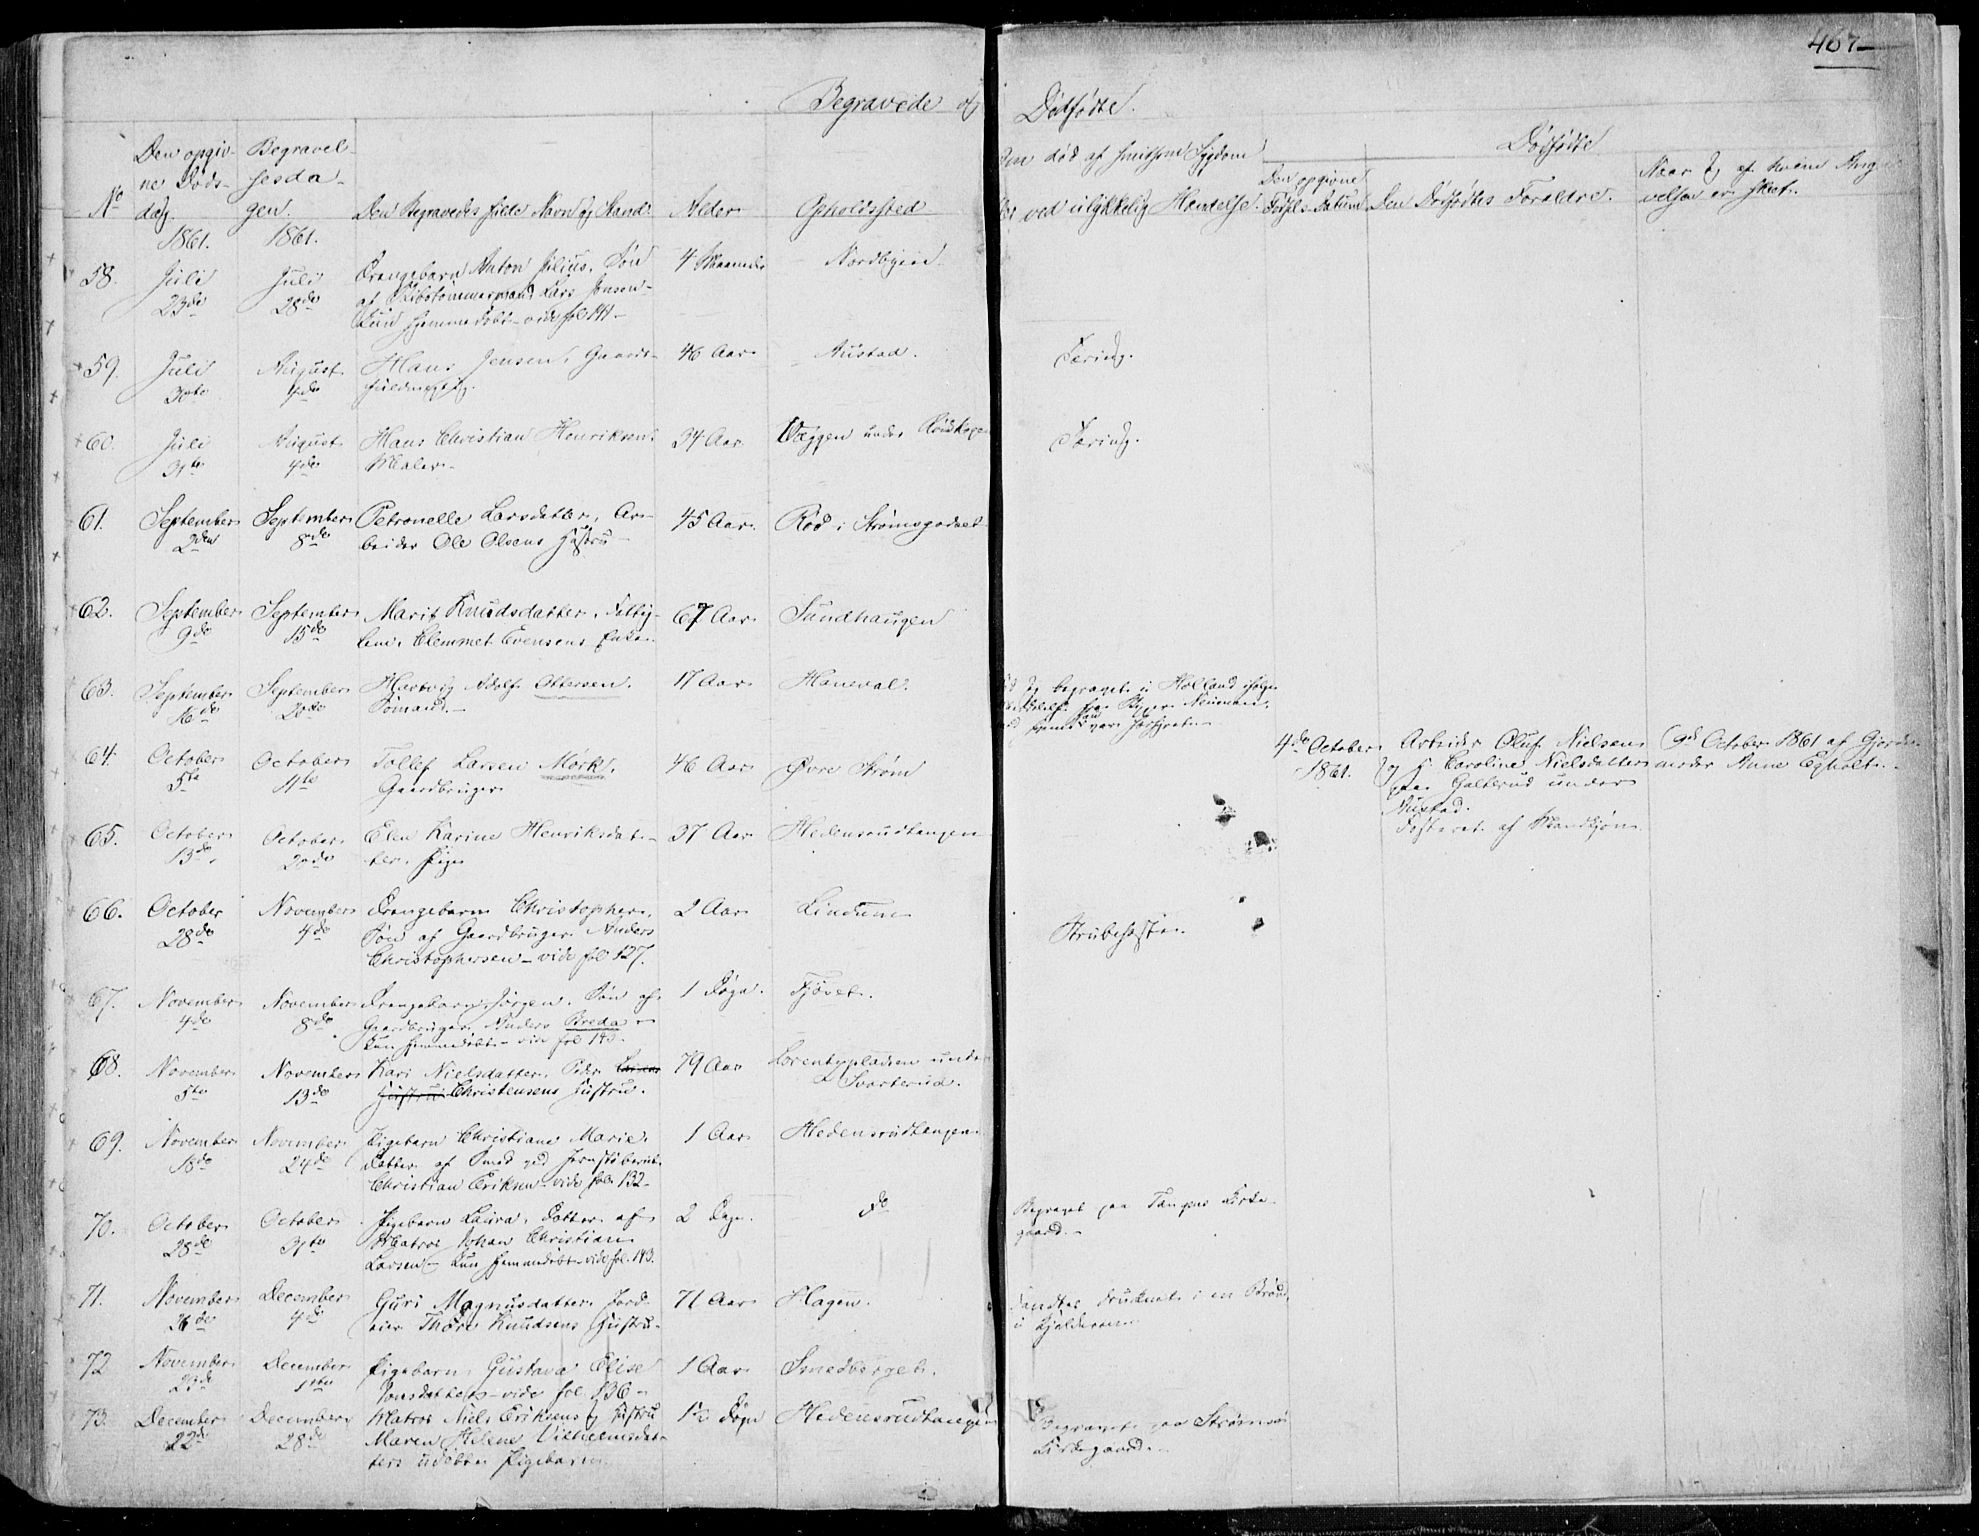 467
Begravede og Dødfødte.
Dødfødte
No
Den opgiv-
ne Døds-
dag.
Begravel-
sesda-
gen.
Den Begravedes fulde Navn og Stand.
Alder
Opholdssted
ved ulykkelig Hændelse.
Den opgivne
Fødsels Datum
Den Dødfødtes Forældre.
Naar og af hvem Ang
velsen er skeet.
1861. 1861.
58. Juli 23de Juli 28de
Drengebarn Anton Julius, Søn
af Skibstømmermand Lars Jonsen
kun hjemmedøbt - vide fol 141 -
4 Maaneder Nordbyen
59. Juli 30te August 4de
Hans Jensen, Gaard-
46 Aar Austad.
Tæring.
60. Juli 31te August 4de
Hans Christian Henriksen
Maler.
34 Aar Væggen under
Tæring.
61. September 2den September 8de
Petronelle Larsdatter, Ar-
beider Ole Olsens Hustru
45 Aar. Rød i Strømsgodset
62. September 9de September 15de
Marit Knudsdatter,
Clemmet Evensens Enke
67 Aar Sundhaugen
63. September 16de September 20de
Hartvig Adolf Ottersen.
Sømand.
17 Aar Haneval.
og begravet i Holland ifølge
64. October 5te October 11te
Tollef Larsen Mørk,
Gaardbruger
46 Aar Øvre Strøm
4de October
1861.
Arbeider Oluf Nielsen
og H. Caroline Nielsdatter
paa Galterud under
Austad.
Fosteret af Mandkjøn.
9de October 1861 af Gjorde-
moder Anne Egholt.
65. October 13de October 20de
Elen Karine Henriksdat-
ter, Pige
37 Aar Hedensrudtangen
66. October 28de November 4de
Drengebarn Christopher,
Søn af Gaardbruger Anders
Christophersen - vide fol 127.
2 Aar Lindum
Strubehoste.
67. November 4de November 8de
Drengebarn Jørgen, Søn af
Gaardbruger Anders Breda
kun hjemmedøbt - vide fol 143.
1 Døgn. Fjøset.
68. November 5te November 13de
Kari Nielsdatter, Peder
Christensens Hustru.
79 Aar Lorentzpladsen under
Svarterud.
69. November 18de November 24de
Pigebarn Christiane Marie,
Datter af Smed ved Jernstøberiet
Christian Eriksen - vide fol 132 -
1 Aar Hedensrudtangen
70. October 28de October 31te
Pigebarn Laura, Datter af
Matros Johan Christian
Larsen - kun hjemmedøbt - vide fol. 143.
2 Dage. do
Begravet paa Tangens Kirke-
gaard. -
71. November 26de December 4de
Guri Magnusdatter, Jord-
eier Thore Knudsens Hustru
71 Aar Hagen.
Fandtes druknet i en Brønd
i Kjelderen
72 November 23de December 1ste
Pigebarn Gustava Elise
Jonsdatter - vide fol 136 -
1 Aar Smedberget.
73. December 22de December 28de
Matros Niels Eriksens og Hustru
Maren Helene Vilhelmsdat-
ters udøbte Pigebarn
1½ Døgn Hedensrudtangen
Begravet paa Strømsø
Kirkegaard. -